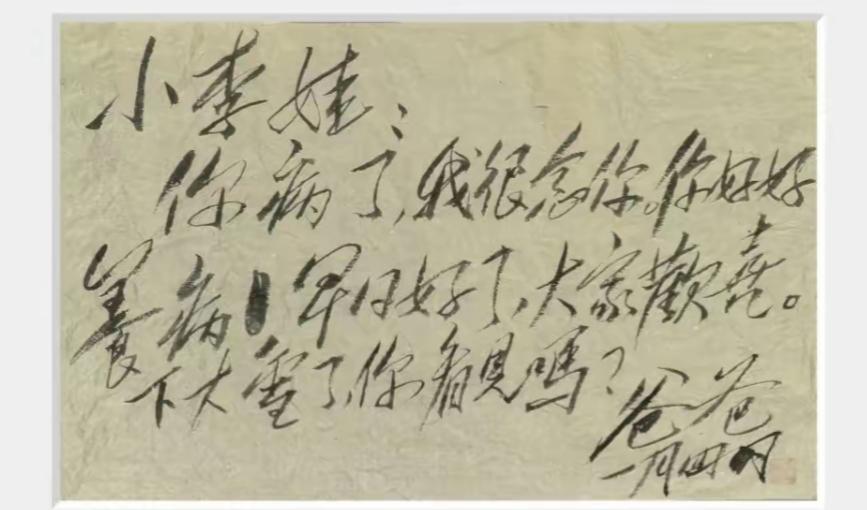 小李娃：
你病了，我很念你。你好好
養病，早日好了，大家歡喜。
下大雪了，你看見嗎？
爸爸
一月四日